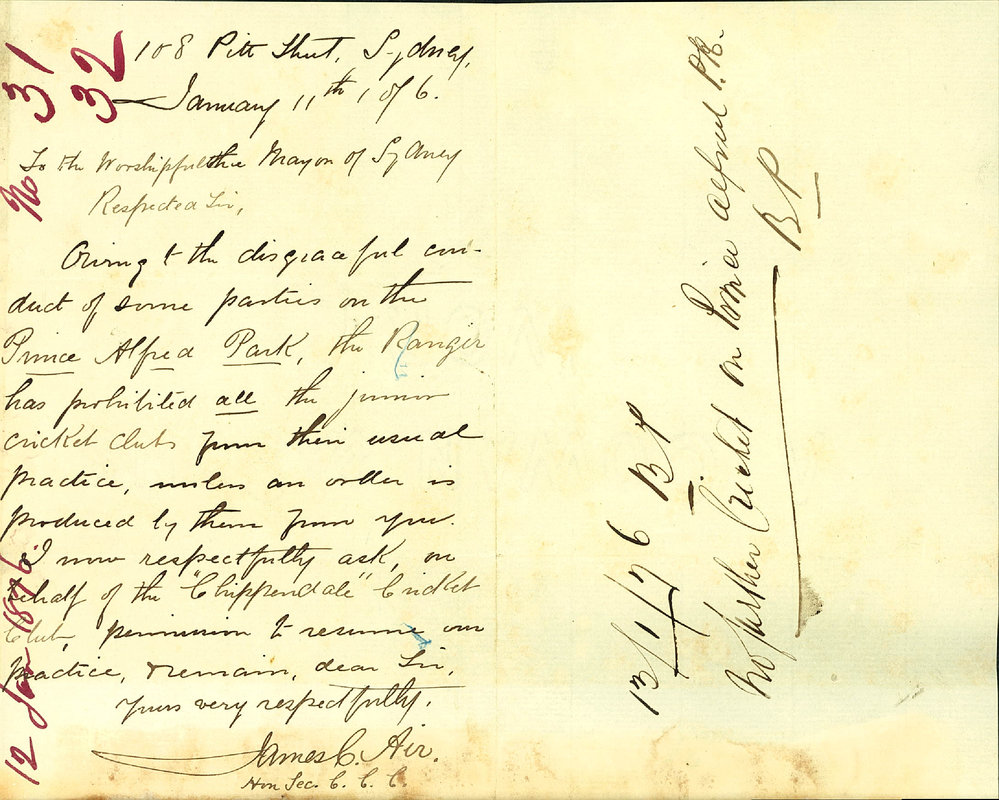 108 Pitt Street, Sydney,
January 11th 1876.
To the Worshipful the Mayor of Sydney
Respected Sir,
Owing to the disgraceful con-
duct of some parties on the
Prince Alfred Park, the Ranger
has prohibited all the junior
cricket clubs from their usual
practice, unless an order is
produced by them from you.
I now respectfully ask, on
behalf of the "Chippendale" Cricket
Club, permission to resume our
practice, & remain, dear Sir,
Yours very respectfully,
James C. Air.
Hon Sec. C. C. C.
No 31
32
12 Jan 1876.
13/1/76 BP
No further Cricket on Prince Alfred Pk.
BP